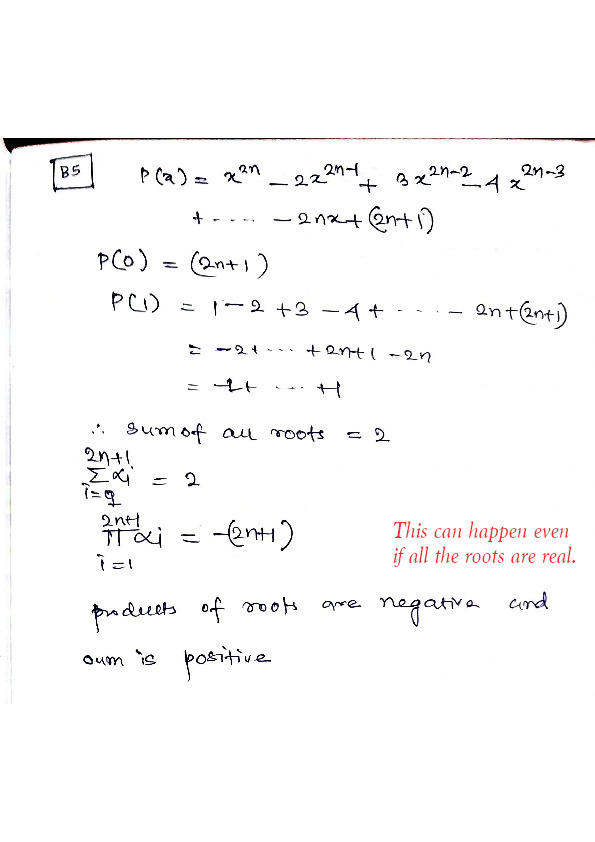 B5
P(x) = x^{2n} - 2x^{2n-1} + 3x^{2n-2} - 4x^{2n-3}
+ ---- - 2nx + (2n+1)
P(0) = (2n+1)
P(1) = 1 - 2 + 3 - 4 + ---- - 2n + (2n+1)
= -2 + --- + 2n+1 - 2n
= -1 + --- +1
∴ sum of all roots = 2
\sum_{i=1}^{2n+1} αi = 2
\prod_{i=1}^{2n+1} αi = -(2n+1)
This can happen even
if all the roots are real.
products of roots are negative and
sum is positive